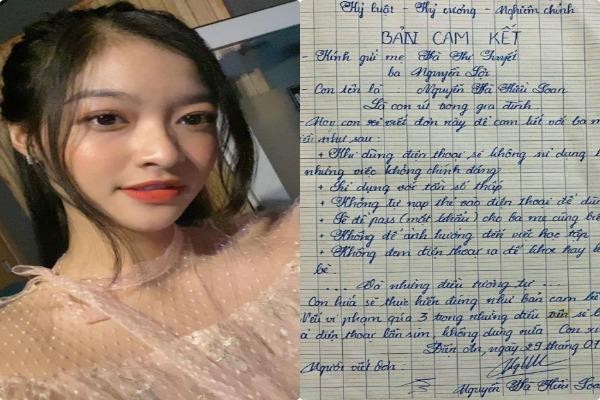 Kỷ luật - Kỷ cương - Nghiêm chỉnh
BẢN CAM KẾT
- Kính gửi mẹ Hà Thị Tuyết
ba Nguyễn Lợi
- Con tên là : Nguyễn Hà Hữu Toan
Là con út trong gia đình
- Nay con xi viết đơn này để cam kết với ba m
như sau :
+ Khi dùng điện thoại sẽ không sử dụng
những việc không chính đáng
+ Sử dụng với tần số thấp
+ Không tự nạp thẻ vào điện thoại để
+ Sẽ để pass (mật khẩu) cho ba mẹ cùng biế
+ Không để ảnh hưởng đến việc học tập
+ Không đem điện thoại ra để khoe hay
bè.
... Và những điều tương tự ...
Con hứa sẽ thực hiện đúng như bản cam kế
Nếu vi phạm quá 3 trong những điều trên sẽ
điện thoại lẫn sim, không dùng nữa. Con
Điện An, ngày 29 tháng 01
Người viết đơn :
Nguyễn Hà Hữu Toan